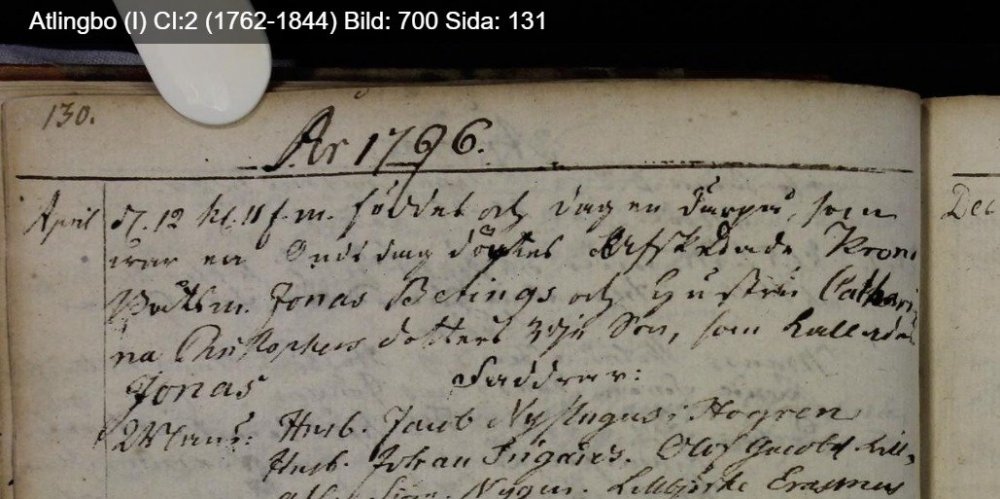 Atlingbo (I) CI:2 (1762-1844) Bild: 700 Sida: 131
130.
År 1796.
April d. 12 kl. 11 f.m. föddes och dagen därpå, som
war en Onsdag döptes Afskedade Kron
Båtsm. Jonas Betings och Hustru Cathari
na Christophers dotters 3dje Son, som kallades
Jonas Faddrar:
Husb. Jacob Nystugus. Hogren
Husb. Johan Olof Jacobs
Lillbjerke Erasmus
Dec